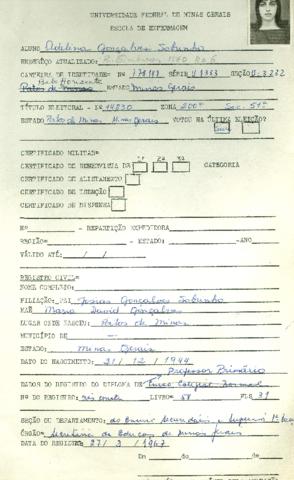 UNIVERSIDADE FEDERAL DE MINAS GERAIS
ESCOLA DE ENFERMAGEM
ALUNO Adelina Gonçalves Sobrinho
ENDEREÇO ATUALIZADO:
CARTEIRA DE IDENTIDADE= Nº SÉRIE SEÇÃO
Belo Horizonte
Patos de Minas ESTADO Minas Gerais
TÍTULO ELEITORAL - Nº 14830 ZONA 200ª Sec. 51ª
ESTADO Patos de Minas Minas Gerais VOTOU NA ÚLTIMA ELEIÇÃO?
CERTIFICADO MILITAR=
CERTIFICADO DE RESERVISTA DE 1ª 2ª 3ª CATEGORIA
CERTIFICADO DE ALISTAMENTO
CERTIFICADO DE ISENÇÃO
CERTIFICADO DE DISPENSA
Nº - REPARTIÇÃO EXPEDIDORA
REGIÃO= - ESTADO: -ANO
VÁLIDO ATÉ: / /
REGISTRO CIVIL=
NOME COMPLETO:
FILIAÇÃO= PAI Josias Gonçalves Sobrinho
MÃE Maria David Gonçalves
LUGAR ONDE NASCEU: Patos de Minas
MUNICÍPIO DE
ESTADO: Minas Gerais
DATO DO NASCIMENTO: 21/ 12 / 1944
Professor Primário
DADOS DO REGISTRO DO DIPLOMA DE Normal
Nº DO REGISTRO: LIVRO= FLS 31
SEÇÃO OU DEPARTAMENTO: do Ensino Secundário e Superior
ÓRGÃO= Secretaria da Educação de Minas Gerais
DATA DO REGISTRO: 27/ 3 / 1967
Em de de